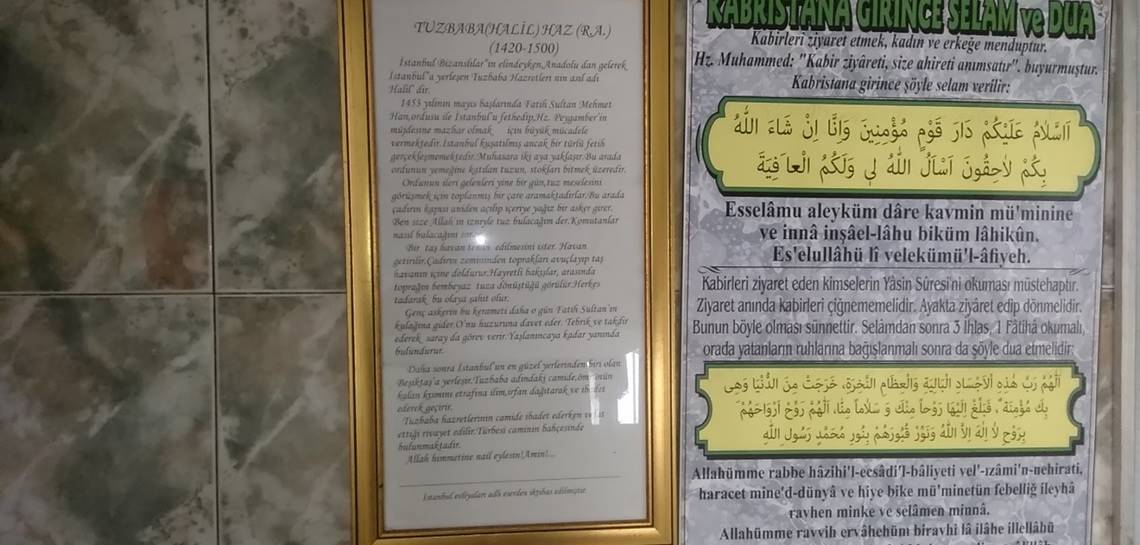 TUZBABA(HALİL) HAZ (R.A.)
(1420-1500)
İstanbul Bizanslılar'ın elindeyken,Anadolu dan gelerek
İstanbul'a yerleşen Tuzbaba Hazretleri nin asıl adı
Halil' dir.
1453 yılının mayıs başlarında Fatih Sultan Mehmet
Han,ordusu ile İstanbul'u fethedip,Hz. Peygamber'in
müjdesine mazhar olmak için büyük mücadele
vermektedir.İstanbul kuşatılmış ancak bir türlü fetih
gerçekleşmemektedir.Muhasara iki aya yaklaşır.Bu arada
ordunun yemeğine katılan tuzun, stokları bitmek üzeredir.
Ordunun ileri gelenleri yine bir gün,tuz meselesini
görüşmek için toplanmış bir çare aramaktadırlar.Bu arada
çadırın kapısı aniden açılıp içeriye yağız bir asker girer.
Ben size Allah'ın izniyle tuz bulacağım der.Komutanlar
nasıl bulacağını
Bir taş havan edilmesini ister. Havan
getirilir.Çadırın zemininden toprakları avuçlayıp taş
havanın içine doldurur.Hayretli bakışlar, arasında
toprağın bembeyaz tuza dönüştüğü görülür.Herkes
tadarak bu olaya şahit olur.
Genç askerin bu kerameti daha o gün Fatih Sultan'ın
kulağına gider.O'nu huzuruna davet eder. Tebrik ve takdir
ederek saray da görev verir.Yaşlanıncaya kadar yanında
bulundurur.
Daha sonra İstanbul'un en güzel yerlerinden biri olan
Beşiktaş'a yerleşir.Tuzbaba adındaki camide,ömrünün
kalan kısmını etrafına ilim,irfan dağıtarak ve ibadet
ederek geçirir.
Tuzbaba hazretlerinin camide ibadet ederken vefat
ettiği rivayet edilir.Türbesi caminin bahçesinde
bulunmaktadır.
Allah himmetine nail eylesin!Amin!...
İstanbul evliyaları adlı eserden iktibas edilmiştir.
KABRİSTANA GİRİNCE SELAM ve DUA
Kabirleri ziyaret etmek, kadın ve erkeğe menduptur.
Hz. Muhammed: "Kabir ziyâreti, size ahireti anımsatır". buyurmuştur.
Kabristana girince şöyle selam verilir:
اَلسَّلَامُ عَلَيْكُمْ دَارَ قَوْمٍ مُؤْمِنِينَ وَاِنَّا اِنْ شَاءَ اللّٰهُ
بِكُمْ لَاحِقُونَ اَسْأَلُ اللّٰهَ لِي وَلَكُمُ الْعَافِيَةَ
Esselâmu aleyküm dâre kavmin mü'minine
ve innâ inşâel-lâhu biküm lâhikûn.
Es'elullahü lî velekümü'l-âfiyeh.
Kabirleri ziyaret eden kimselerin Yâsin Sûresi'ni okuması müstehaptır.
Ziyaret anında kabirleri çiğnememelidir. Ayakta ziyâret edip dönmelidir.
Bunun böyle olması sünnettir. Selâmdan sonra 3 İhlas, 1 Fâtihâ okumalı,
orada yatanların ruhlarına bağışlanmalı sonra da şöyle dua etmelidir:
اَللّٰهُمَّ رَبَّ هٰذِهِ الْاَجْسَادِ الْبَالِيَةِ وَالْعِظَامِ النَّخِرَةِ، خَرَجَتْ مِنَ الدُّنْيَا وَهِىَ
بِكَ مُؤْمِنَةٌ، فَبَلِّغْ اِلَيْهَا رَوْحاً مِنْكَ وَ سَلَاماً مِنَّا، اَللّٰهُمَّ رَوِّحْ اَرْوَاحَهُمْ
بِرَوْحِ لَا اِلٰهَ اِلَّا اللّٰهُ وَنَوِّرْ قُبُورَهُمْ بِنُورِ مُحَمَّدٍ رَسُولِ اللّٰهِ
Allahümme rabbe hâzihi'l-ecsâdi'l-bâliyeti vel'-ızâmi'n-nehirati,
haracet mine'd-dünyâ ve hiye bike mü'minetün febelliğ ileyhâ
ravhen minke ve selâmen minnâ.
Allahümme ravvih ervâhehüm biravhi lâ ilâhe illellâhü